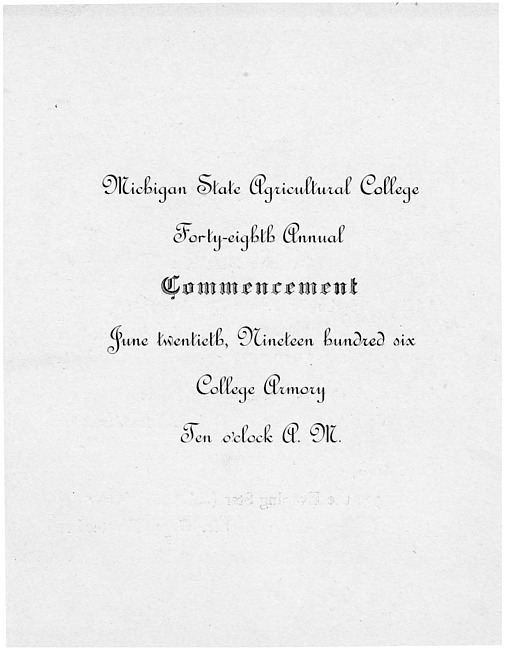 Michigan State Agricultural College
Forty-eighth Annual
Commencement
June twentieth, Nineteen hundred six
College Armory
Ten o'clock A. M.